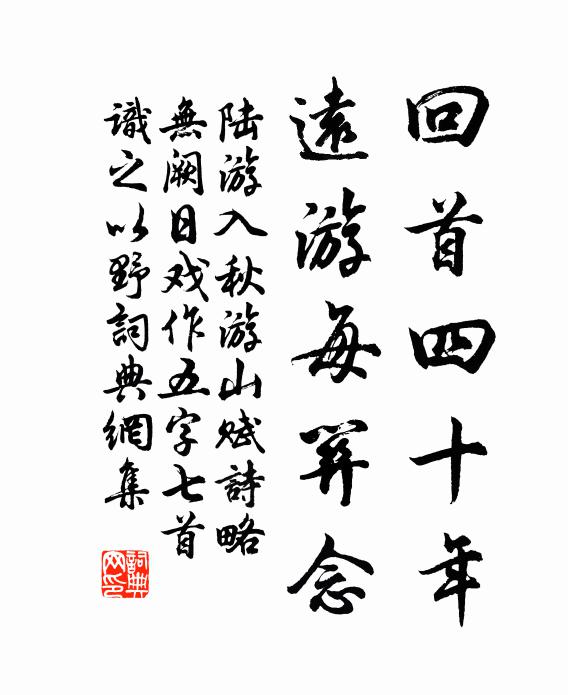 回首四十年
遠游每關念
陆游入秋游山赋詩略
無阙日戏作五字七首
識之以野詞典網集
詞典网印